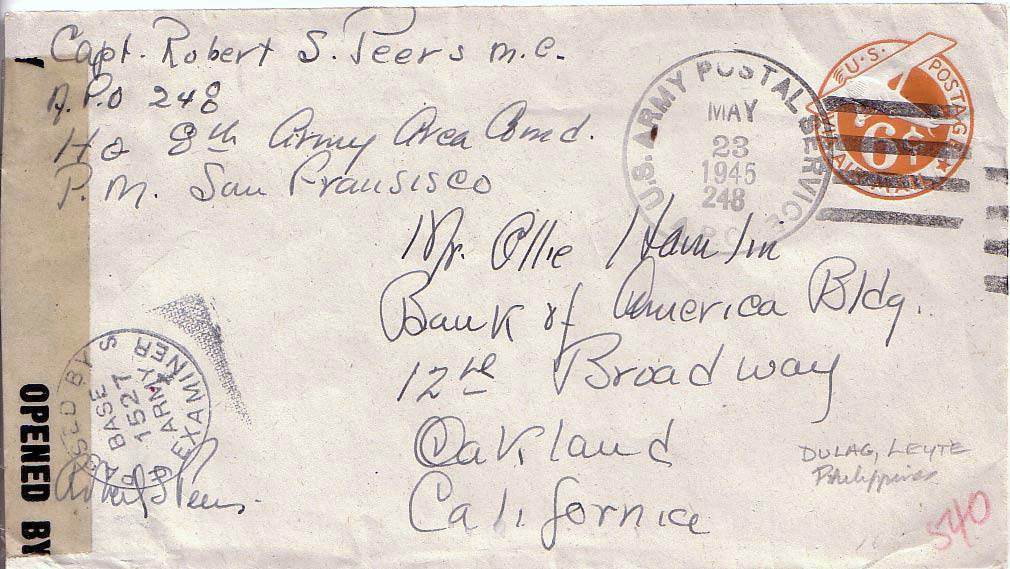 Capt. Robert S. Peers M.C.
A.P.O 248
HQ 8th Army Area Comd.
P.M. San Fransisco
U.S. ARMY POSTAL SERVICE
MAY
23
1945
248
A.P.O.
U.S. POSTAGE
6¢
AIR MAIL
Mr. Ollie Hamlin
Bank of America Bldg.
12th Broadway
Oakland
California
BASE
1527
ARMY
EXAMINER
Robert S Peers.
OPENED BY
DULAG, LEYTE
Philippines
540